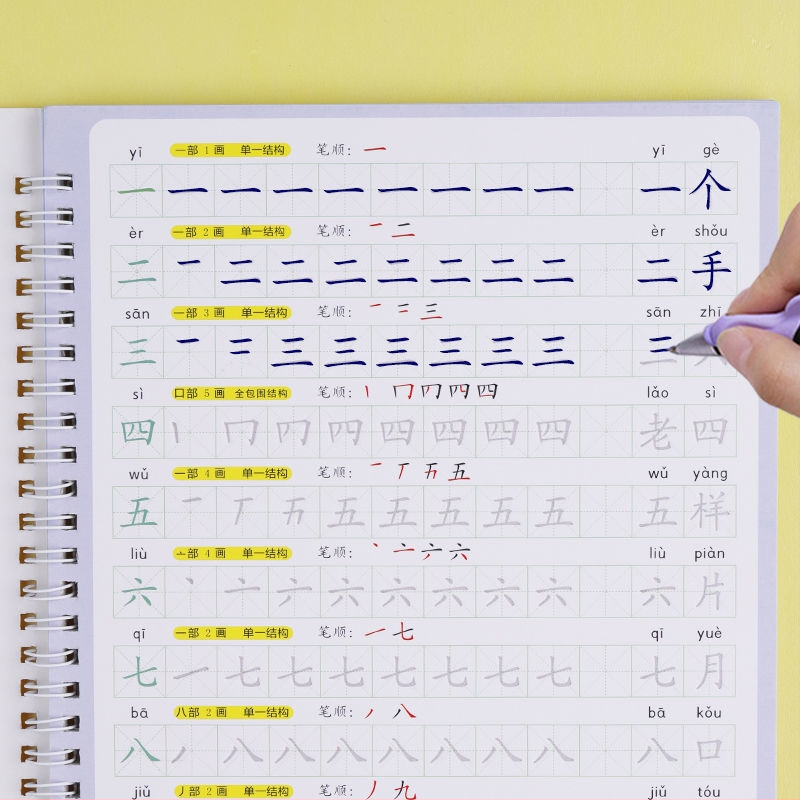 yī 一部 1 画 单一结构 笔顺: 一 yī gè
一 一 一 一 一 一 一 一 一 一 个
èr 一部 2 画 单一结构 笔顺: 一 二 èr shǒu
二 一 二 二 二 二 二 二 二 二 手
sān 一部 3 画 单一结构 笔顺: 一 二 三 sān zhī
三 一 二 三 三 三 三 三 三 三
sì 口部 5 画 全包围结构 笔顺: 丨 冂 四 lǎo sì
四 丨 冂 四 四 四 四 四 老 四
wǔ 一部 4 画 单一结构 笔顺: 一 丅 五 wǔ yàng
五 一 丅 五 五 五 五 五 五 样
liù 亠部 4 画 单一结构 笔顺: 丶 亠 六 liù piàn
六 丶 亠 六 六 六 六 六 六 片
qī 一部 2 画 单一结构 笔顺: 一 七 qī yuè
七 一 七 七 七 七 七 七 七 七 月
bā 八部 2 画 单一结构 笔顺: 丿 八 bā kǒu
八 丿 八 八 八 八 八 八 八 八 口
jiǔ 丿部 2 画 单一结构 笔顺: 丿 九 jiǔ tóu